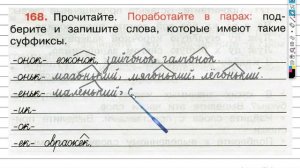 168. Прочитайте. Поработайте в парах: под-
берите и запишите слова, которые имеют такие
суффиксы.
-онок- ежонок, зайчонок, галчонок.
-оньк- махонький, мягонький, лёгонький.
-еньк- маленький, с
-ик-
-ок-
-ек- овражек.